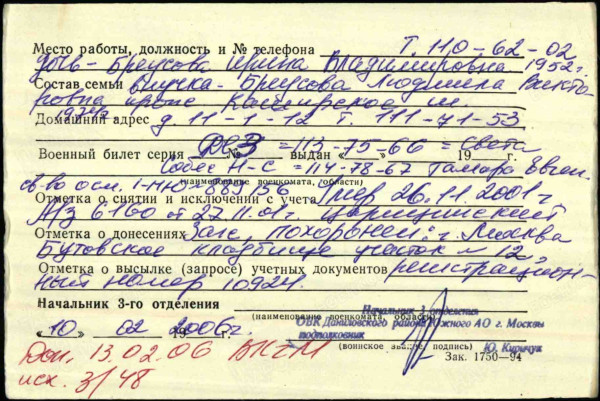 Место работы, должность и № телефона Т. 110-62-02
дочь - Бреусова Ирина Владимировна 1952г.
Состав семьи внучка - Бреусова Людмила Викто
ровна прож Каширское ш.
Домашний адрес д. 11-1-12 т. 111-71-53
Военный билет серия ДЕЗ № = 113-75-66 = Света выдан « » 19 г.
Собес Н-С = 114-78-67 Тамара Евген
св-во осн.
(наименование военкомата, области)
Отметка о снятии и исключении с учета Умер 26.11.2001г.
А/з 6160 от 27.11.01г. Царицынский
Отметка о донесениях Загс, похоронен: г. Москва
Бутовское кладбище участок № 12,
Отметка о высылке (запросе) учетных документов регистрацион-
ный номер 10924.
Начальник 3-го отделения
(наименование военкомата, области)
Начальник 3 отделения
ОВК Даниловского района Южного АО г. Москвы
подполковник
«10» 02 2006г.
(воинское звание, подпись) Ю. Киричук
Зак. 1750—94
Доп. 13.02.06 ВКГМ
исх. 3/48